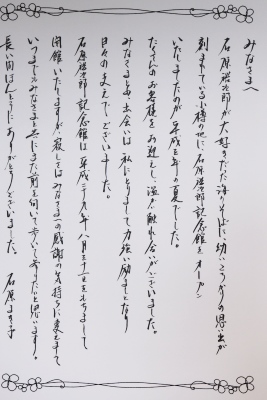 みなさまへ
石原裕次郎が大好きだった海のそばに、幼いころの思い出が
刻まれている小樽の地に、石原裕次郎記念館をオープン
いたしましたのが、平成三年の夏でした。
たくさんのお客様をお迎えし、温かい触れ合いがございました。
みなさまとの出会いは、私にとりまして力強い励ましとなり
日々の支えでございました。
石原裕次郎記念館は、平成二十九年八月三十一日をもちまして
閉館いたしますが、寂しさはみなさまへの感謝の気持ちに変えまして
いつまでもみなさまと共にまた前を向いて歩いて参りたいと思います。
長い間ほんとうにありがとうございました。 石原まき子